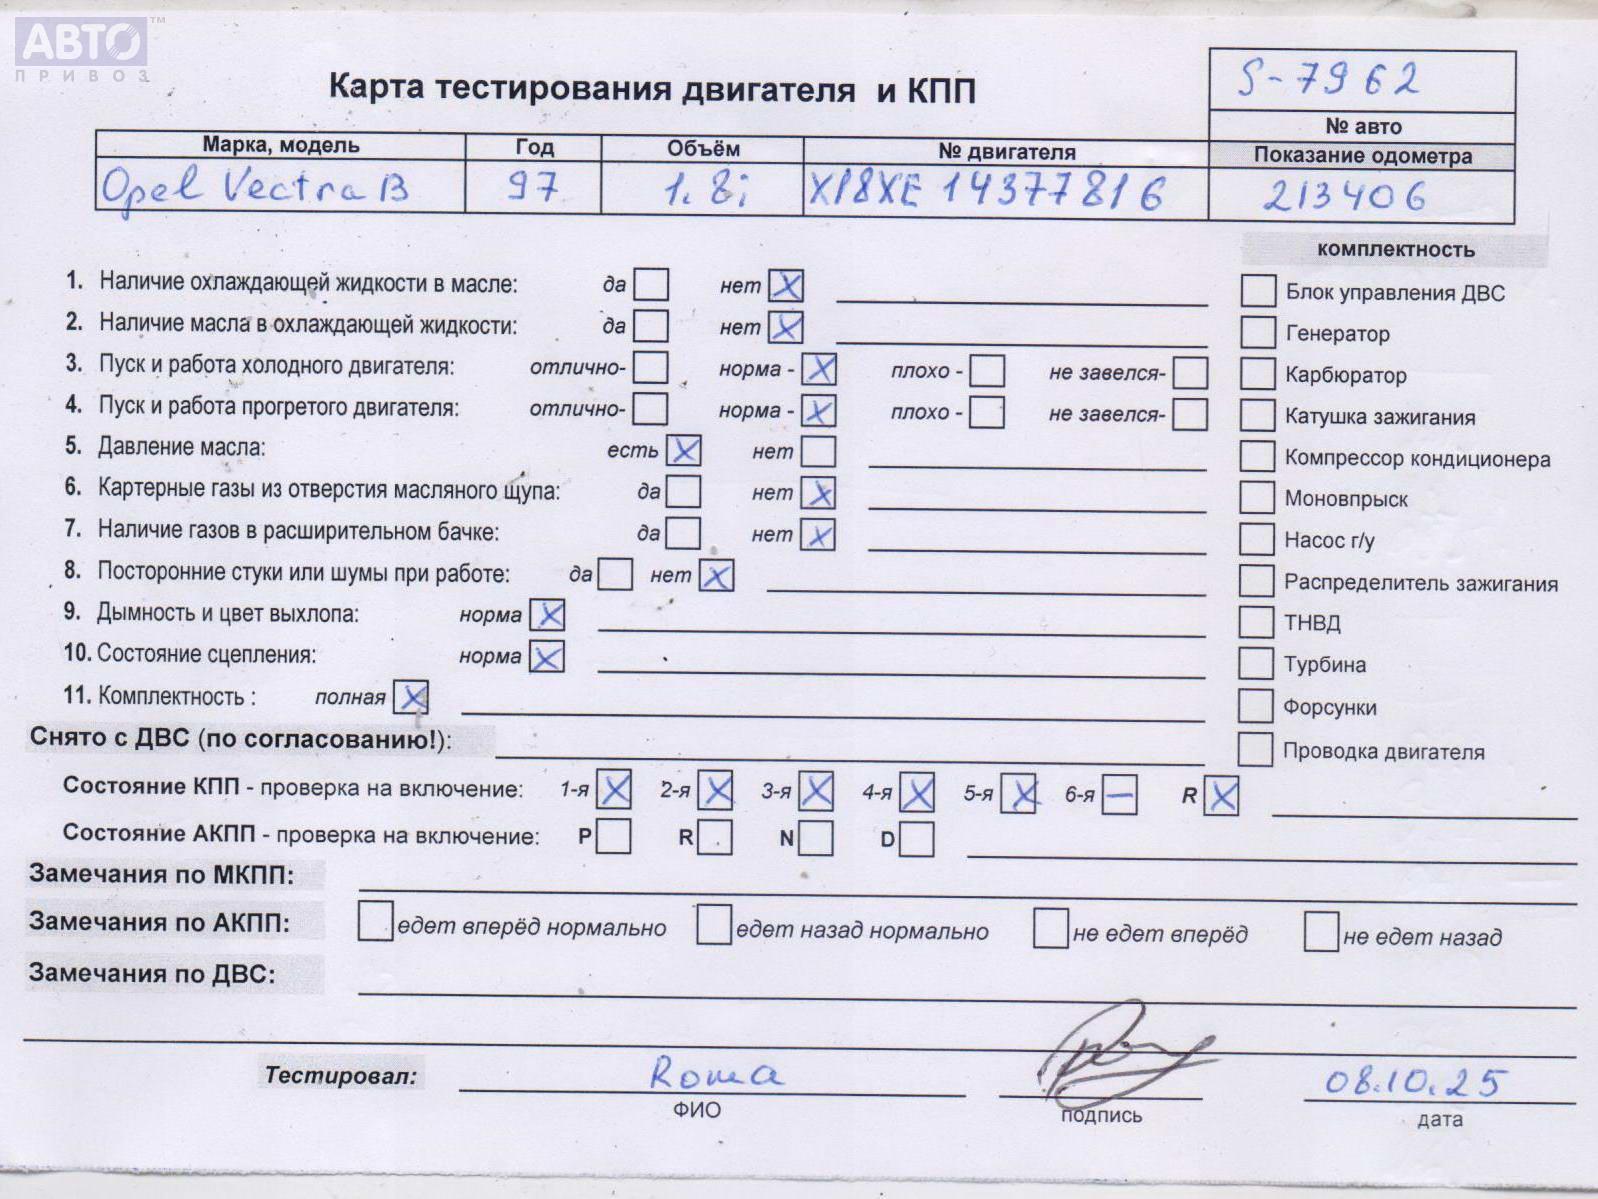 АВТО™
ПРИВОЗ
Карта тестирования двигателя и КПП
S-7962
№ авто
Марка, модель Год Объём № двигателя Показание одометра
Opel Vectra B 97 1.8i X18XE 14377816 213406
комплектность
1. Наличие охлаждающей жидкости в масле: да нет X
2. Наличие масла в охлаждающей жидкости: да нет X
3. Пуск и работа холодного двигателя: отлично- норма - X плохо - не завелся-
4. Пуск и работа прогретого двигателя: отлично- норма - X плохо - не завелся-
5. Давление масла: есть X нет
6. Картерные газы из отверстия масляного щупа: да нет X
7. Наличие газов в расширительном бачке: да нет X
8. Посторонние стуки или шумы при работе: да нет X
9. Дымность и цвет выхлопа: норма X
10. Состояние сцепления: норма X
11. Комплектность : полная X
Блок управления ДВС
Генератор
Карбюратор
Катушка зажигания
Компрессор кондиционера
Моновпрыск
Насос г/у
Распределитель зажигания
ТНВД
Турбина
Форсунки
Проводка двигателя
Снято с ДВС (по согласованию!):
Состояние КПП - проверка на включение: 1-я X 2-я X 3-я X 4-я X 5-я X 6-я – R X
Состояние АКПП - проверка на включение: P R N D
Замечания по МКПП:
Замечания по АКПП: едет вперёд нормально едет назад нормально не едет вперёд не едет назад
Замечания по ДВС:
Тестировал: Roma 08.10.25
ФИО подпись дата